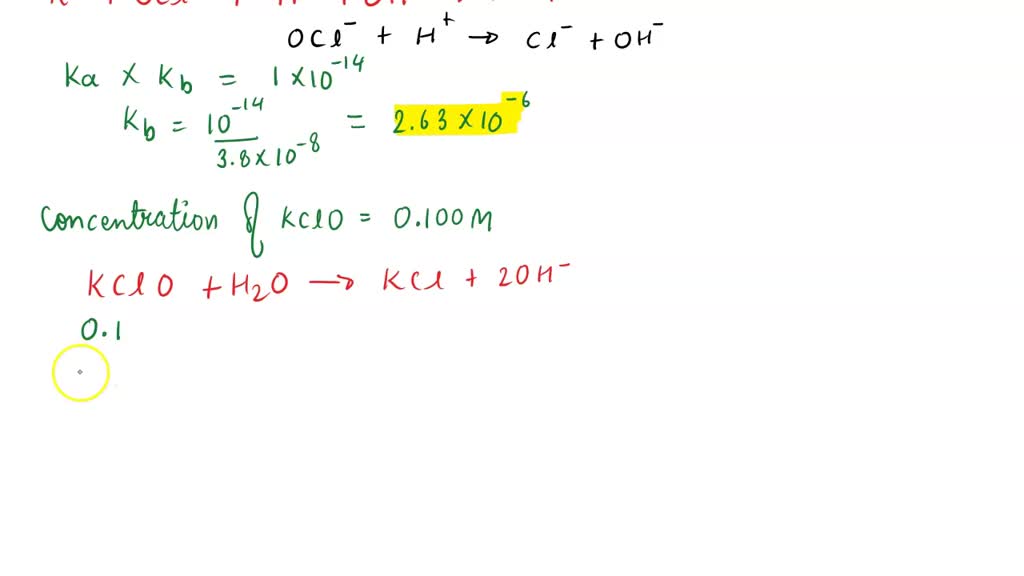 OCl⁻ + H⁺ → Cl⁻ + OH⁻
Ka × Kb = 1 × 10⁻¹⁴
Kb = 10⁻¹⁴ / 3.8 × 10⁻⁸ = 2.63 × 10⁻⁶
Concentration of KClO = 0.100 M
KClO + H₂O → KCl + 2OH⁻
0.1